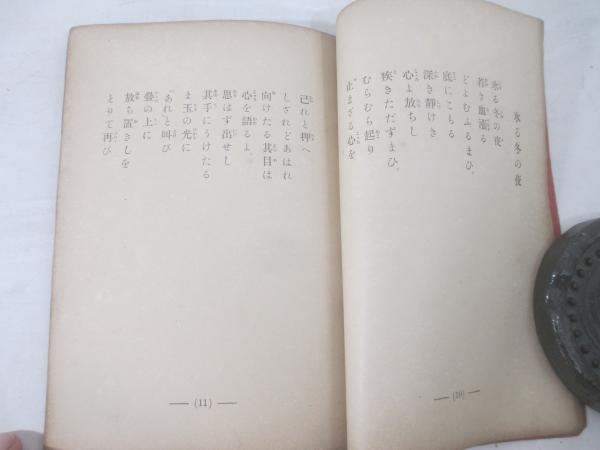 氷る冬の夜
氷る冬の夜
若き血潮る
どよむふるまひ。
底にこもる
深き靜けき
心よ放ちし
疾きたゞずまひ。
むらむら起り
止まざる心を
(10)
己れと押へ
しざれどあはれ
向けたる其目は
心を語るよ。
思はず出せし
其手にうけたる
ま玉の光に
『あれ』と叫び
疊の上に
放ち置きしを
とりて再び
(11)